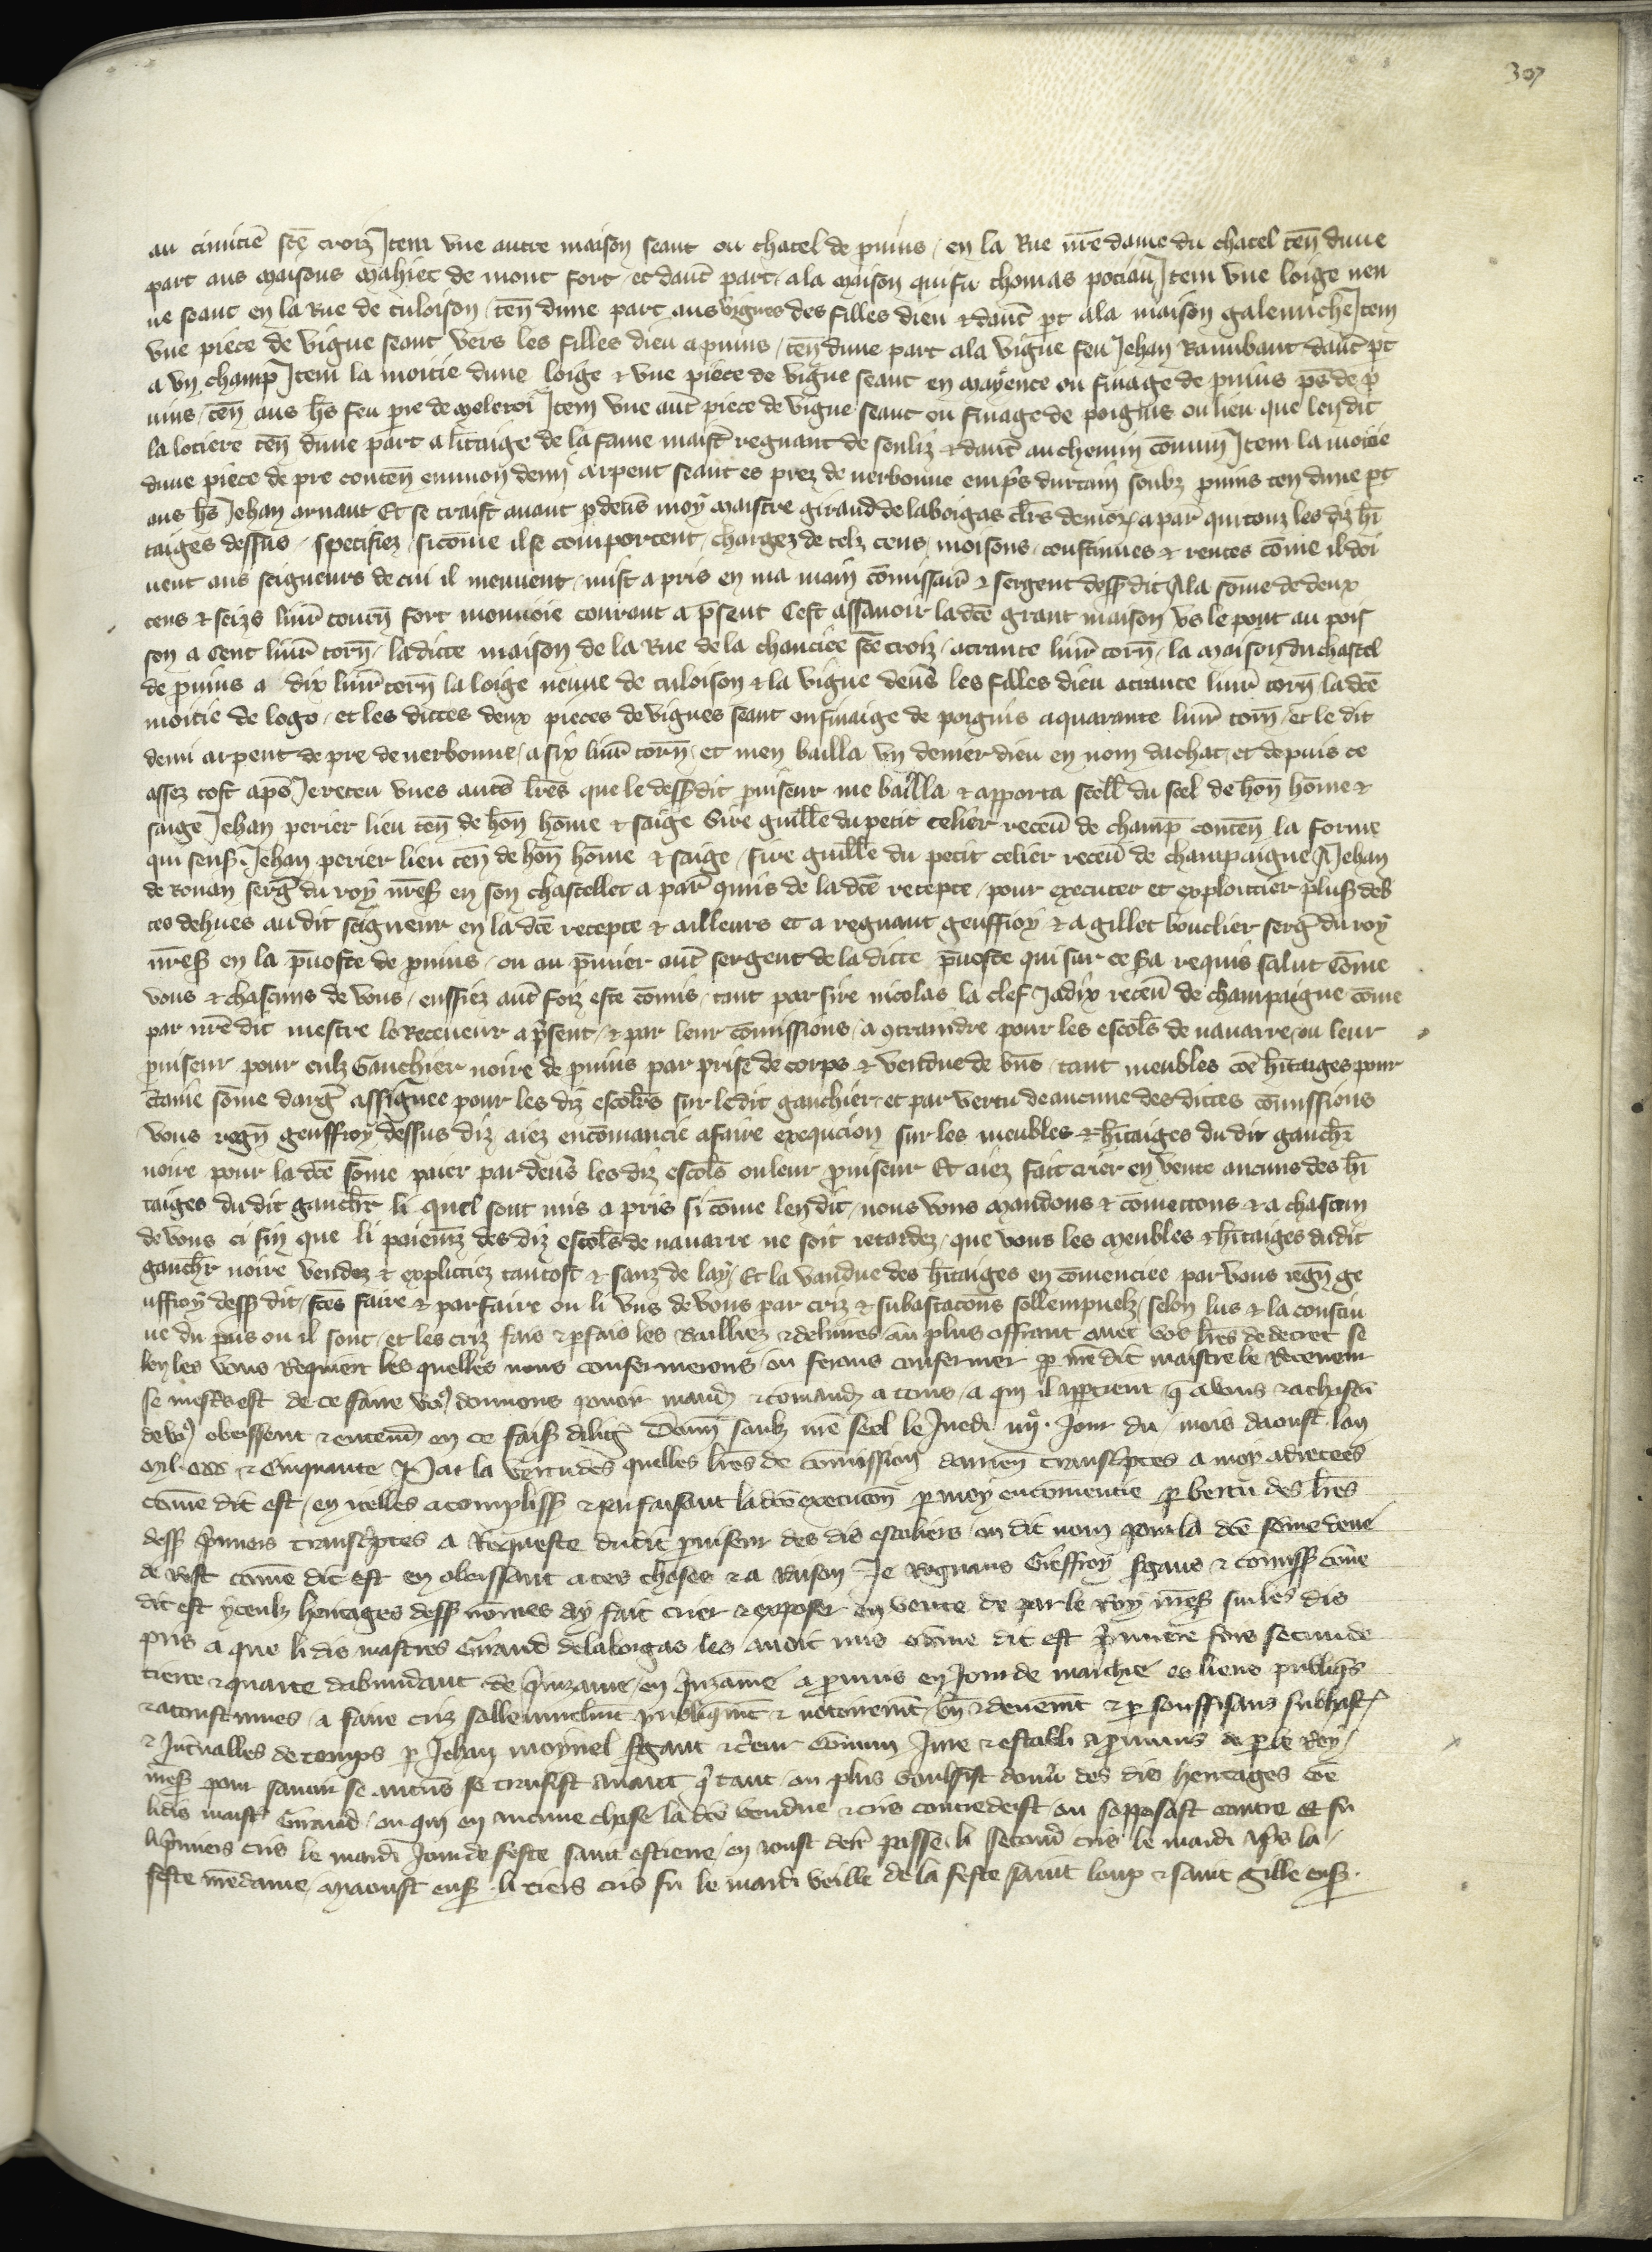 307
au cimitiē ste croiz Item vne autre maison seant ou chatel de puins / en la Rue nrē dame du chatel ten̄ dune
part aus maisons mahiet de mont fort / et daut̄ part / ala maison qui fu thomas potiau Item vne loige neu
ue seant en la Rue de culoison / ten̄ dune part aus vignes des filles dieu & daut̄ pt ala maison galemiche Item
vne piece de vigne seant vers les filles dieu a puins / ten̄ dune part ala vigne feu Jehan Rambant daut̄ pt
a vn champ Item la moitie dune loige & vne piece de vigne seant en mayence ou finage de puins ps de p
uins / ten̄ aus hs feu pre de moleroi Item vne aut̄ piece de vigne seant ou finage de poignis ou lieu que len dit
la lotiere ten̄ dune part a litaige de la fame maist̄ regnant de senliz & daut̄ au chemin cōmun Item la moitie
dune piece de pre conten̄ enuiron demi arpent seant es prez de nerbonne emps̄ durtain soubz puins ten dune pt
aus hs Jehan arnaut Et se traist auant p deūs moy maistre giraud de laborgas clrs demor̄ a par̄ qui touz les diz hī
taiges dessus / specifiez / sicōme il se comportent / chargez de telz cens / moisons / coustumes & rentes cōme il doi
uent aus seigneurs de cui il meuuent / mist a pris en ma main cōmissair̄ & sergent dess dit A la sōme de deux
cens & seize liur̄ tourn̄ fort monnoie courant a psent Cest assauoir ladcē grant maison vs le pont au pois
son a Cent liur̄ torn̄ / ladicte maison de la Rue de la chauciee ste croiz / a trante liur̄ torn̄ / la maison du chastel
de puins a dix liur̄ torn̄ la loige neuue de culoison & la vigne deūs les filles dieu a trante liur̄ torn̄ / ladcē
moitie de loge / et les dictes deux pieces de vignes seant ou finaige de poignis a quarante liur̄ torn̄ / et le dit
demi arpent de pre de nerbonne / a six liur̄ torn̄ / et men bailla vn denier dieu en nom dachat / et depuis ce
assez tost apēs Je receu vnes autēs lrēs que le dess dit puiseur me bailla & apporta scell̄ du scel de hōn hōme &
saige Jehan perier lieu ten̄ de hōn hōme & saige Sire guillē du petit celier receū de champ̄ conten̄ la forme
qui sens̄. Jehan perier lieu ten̄ de hōn hōme & saige / sire guillē du petit celier receū de champaigne A Jehan
de Rouan serḡ du roy nrēs en son chastellet a par̄ qmis de la dcē recepte / pour executer et exploitier plus̄ deb
tes dehues au dit seigneur en la dcē recepte & ailleurs et a regnant geuffroy & a gillet bouclier serḡ du roy
nrēs en la p̄uoste de puins / ou au p̄mier aut̄ sergent de la dicte p̄uoste qui sur ce sa requis salut Cōme
vous & chascuns de vous / eussiez aut̄ foiz este cōmis / tant par sire nicolas la clef Jadix receū de champaigne cōme
par nrē dit mestre le Receueur a p̄sent / & par leur cōmissions / a 9traindre pour les escolrs de nauarre / ou leur
puiseur pour eulz Gauchier noire de puins par prise de corps & vendue de bn̄s / tant meubles cōe hitaiges pour
ctaine sōme darḡ assignee pour les diz escolrs sur le dit gauchier / et par vertu de aucune des dictes cōmissions
vous regn̄ geuffroy dessus diz aiez encōmancie a faire exequcion sur les meubles & hitaiges du dit gauchr̄
noire pour la dcē sōme paier par deūs les diz escolrs ou leur puiseur Et aiez fait crier en vente aucuns des hī
taiges du dit gauchr̄ li quel sont mis a pris si cōme len dit / nous vous mandons & cōmettons & a chascun
de vous ci fin que li paiemz des diz escolrs de nauarre ne soit retardez / que vous les meubles & hitaiges du dit
gauchr̄ noire vendez & explictiez tantost & sanz de lay / Et la vandue des hitaiges en cōmenciee par vous regn̄ ge
uffroy dess dit / fctēs faire & parfaire ou li vns de vous par criz & subastacōns sollempnelz / selon lus & la coustu
me du païs ou il sont / et les criz fais & pfais les bailliez & deliures au plus offrant auec vos lrēs de decret se
len les vous Requiert les quelles nous confermerons / ou ferons confermer p nrē dit maistre le Receueur
se mestier est de ce faire vo9 donnons pouoir mand̄ & cōmand̄ a touz / a qui il appetient q̄ a vous & a chascū
de vo9 obeissent & entend̄ en ce fais̄ diliḡ Donn̄ soubz nrē scel le Juedi iiije. Jour du mois daoust lan
mil ccc & Cinquante Par la vertu des quelles lrēs de cōmission darren̄ transcptes a moy adrecees
cōme dit est / en icelles acompliss̄ & pfaisant la dcē execucōn p moy encōmencie p vertu des lrēs
dess p̄miers transcptes a Requeste du dit puiseur des dis escoliers / ou dit nom pour la dcē sōme deue
de Rest cōme dit est en obeissant a ces choses & a Raison Je Regnaus Gieffroy sgans & cōmiss̄ cōme
dit est yceulz heritages dess nōmes ay fait crier & exposer en vente de par le Roy nrēs sur les dis
pris a que li dis maistres Giraud delaborgas les auoit mis cōme dit est p̄miere fois seconde
tierce & quarte dabundant de q̄inzaine / en q̄inzaine a prouins en Jour de marchie es lieus publiq̄s
& acoustumes / a faire criz sollempnelmt publiq̄mt & notoiremt / bn̄ & deuemt & p souffisans subhast̄
& Int̄ualles de temps p Jehan moynel sgant & c̄eur cōmun Jure & establi a prouins de p le Roy /
nrēs pour sauoir se aucuns se traisist auant q̄ tant / ou plus voulsist donn̄ des dis heritages cōe
li dis maistr̄ Giraud / ou qui en aucune chose la dcē vendue & cris contredeist / ou sopposast contre Et fu
li p̄miers cris le mardi Jour de feste saint estiene / en aoust derr̄ passe / li second cris le mardi ap̄s la /
feste nrēdame / maoust ens̄ li tiers cris fu le mardi veille de la feste saint loup & saint Gille ens̄.